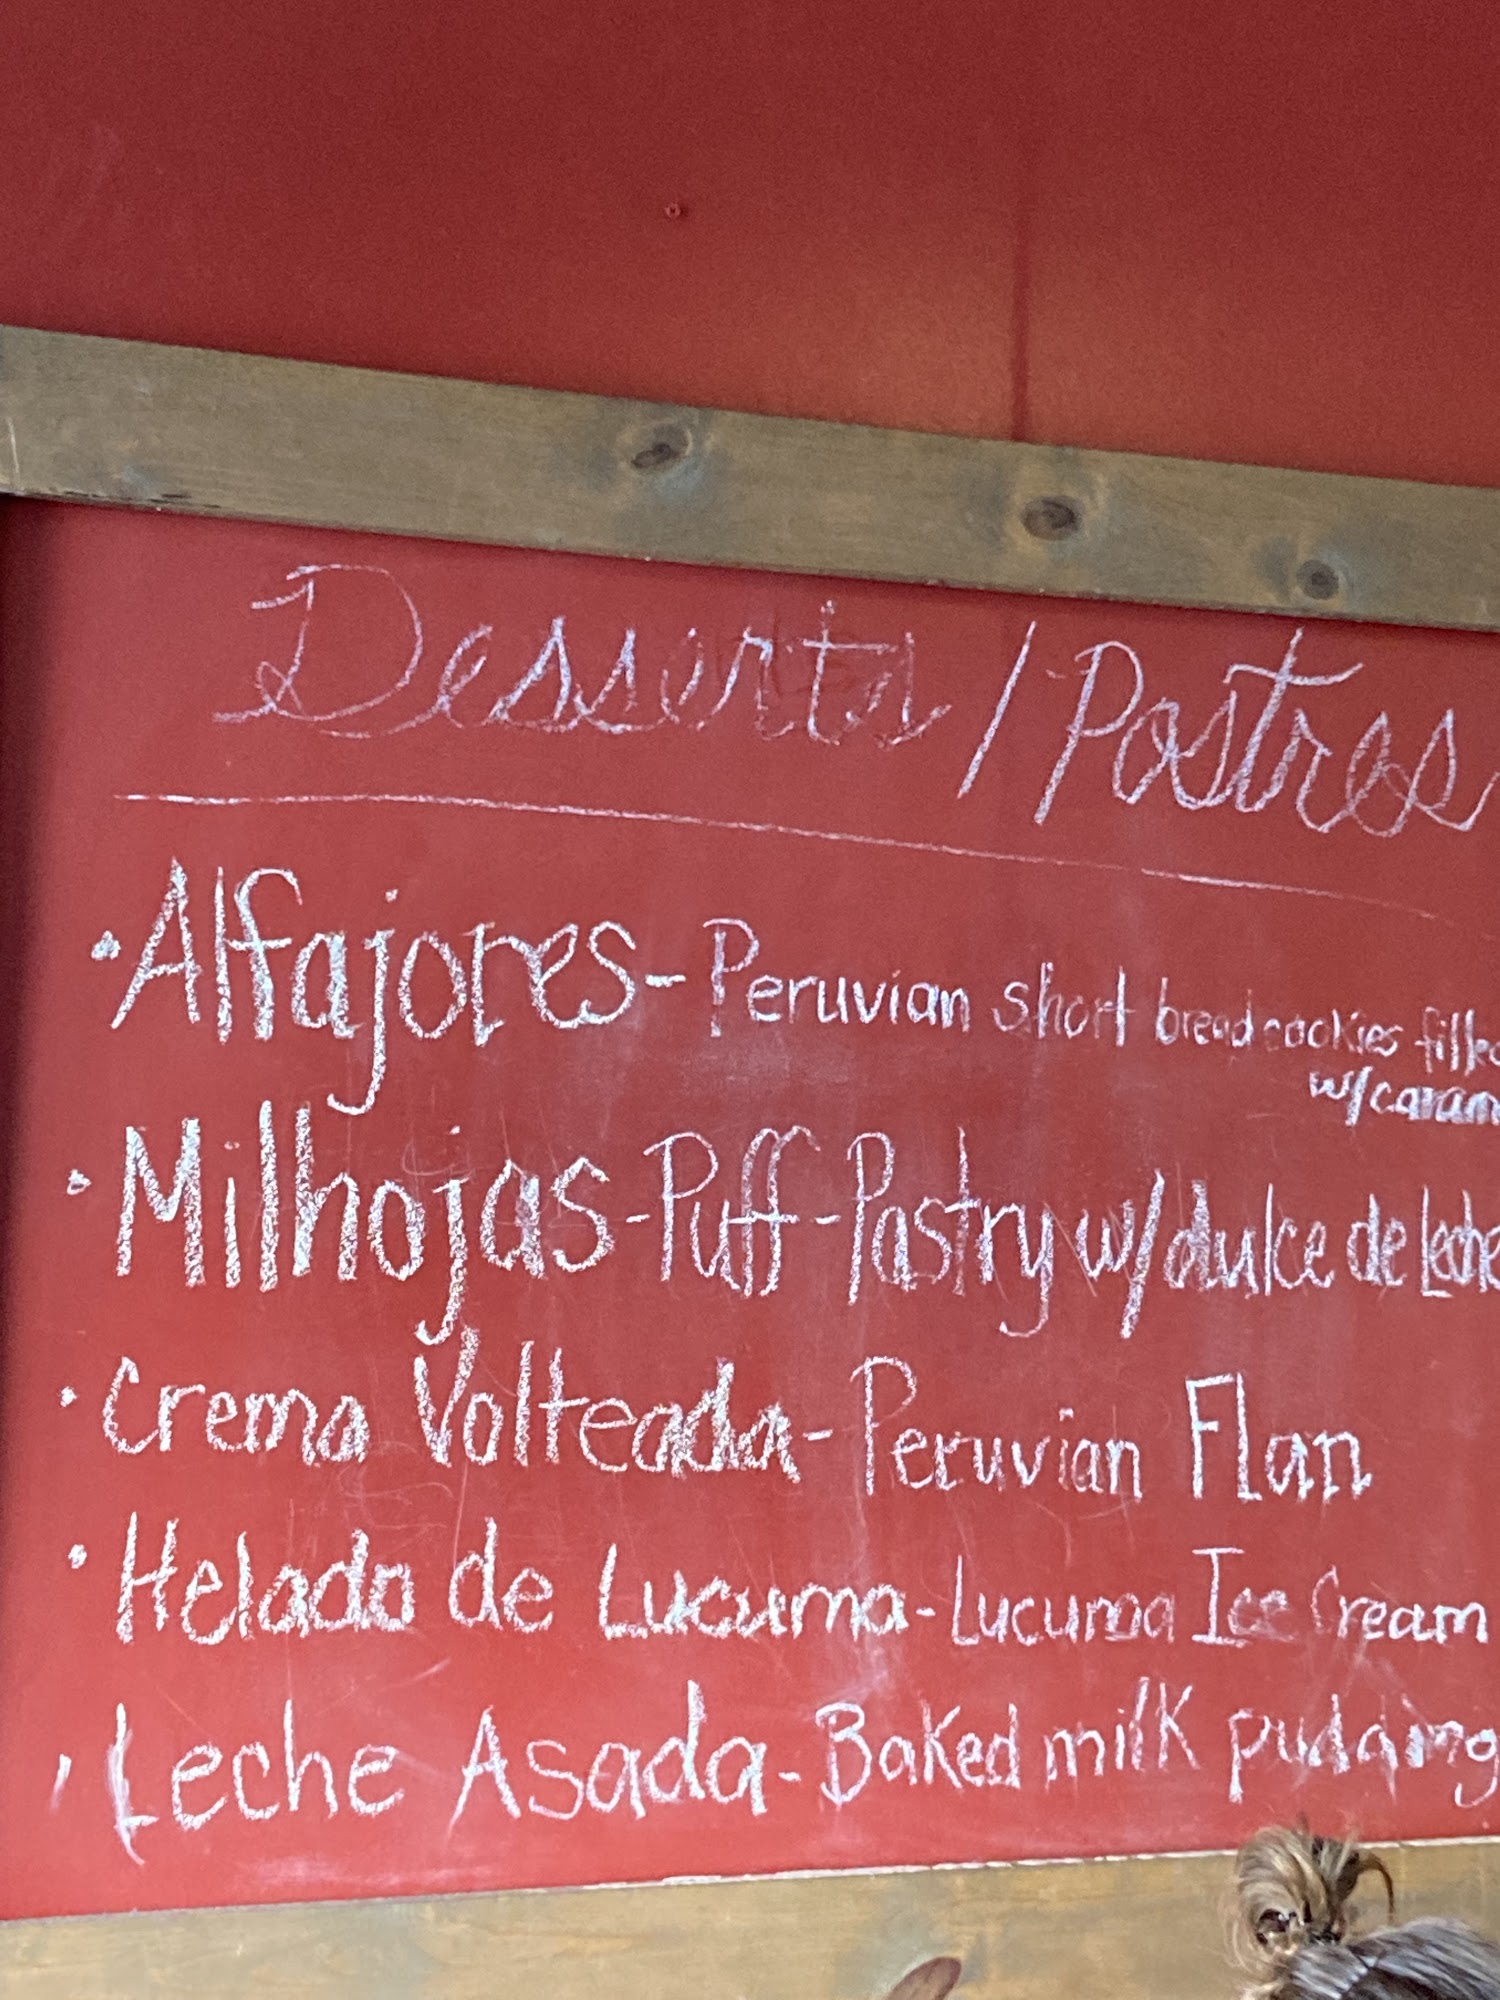 Desserts / Postres
• Alfajores - Peruvian short bread cookies filled
w/caram
• Milhojas - Puff-Pastry w/dulce de leche
• Crema Volteada - Peruvian Flan
• Helado de Lucuma - Lucuma Ice Cream
• Leche Asada - Baked milk pudding